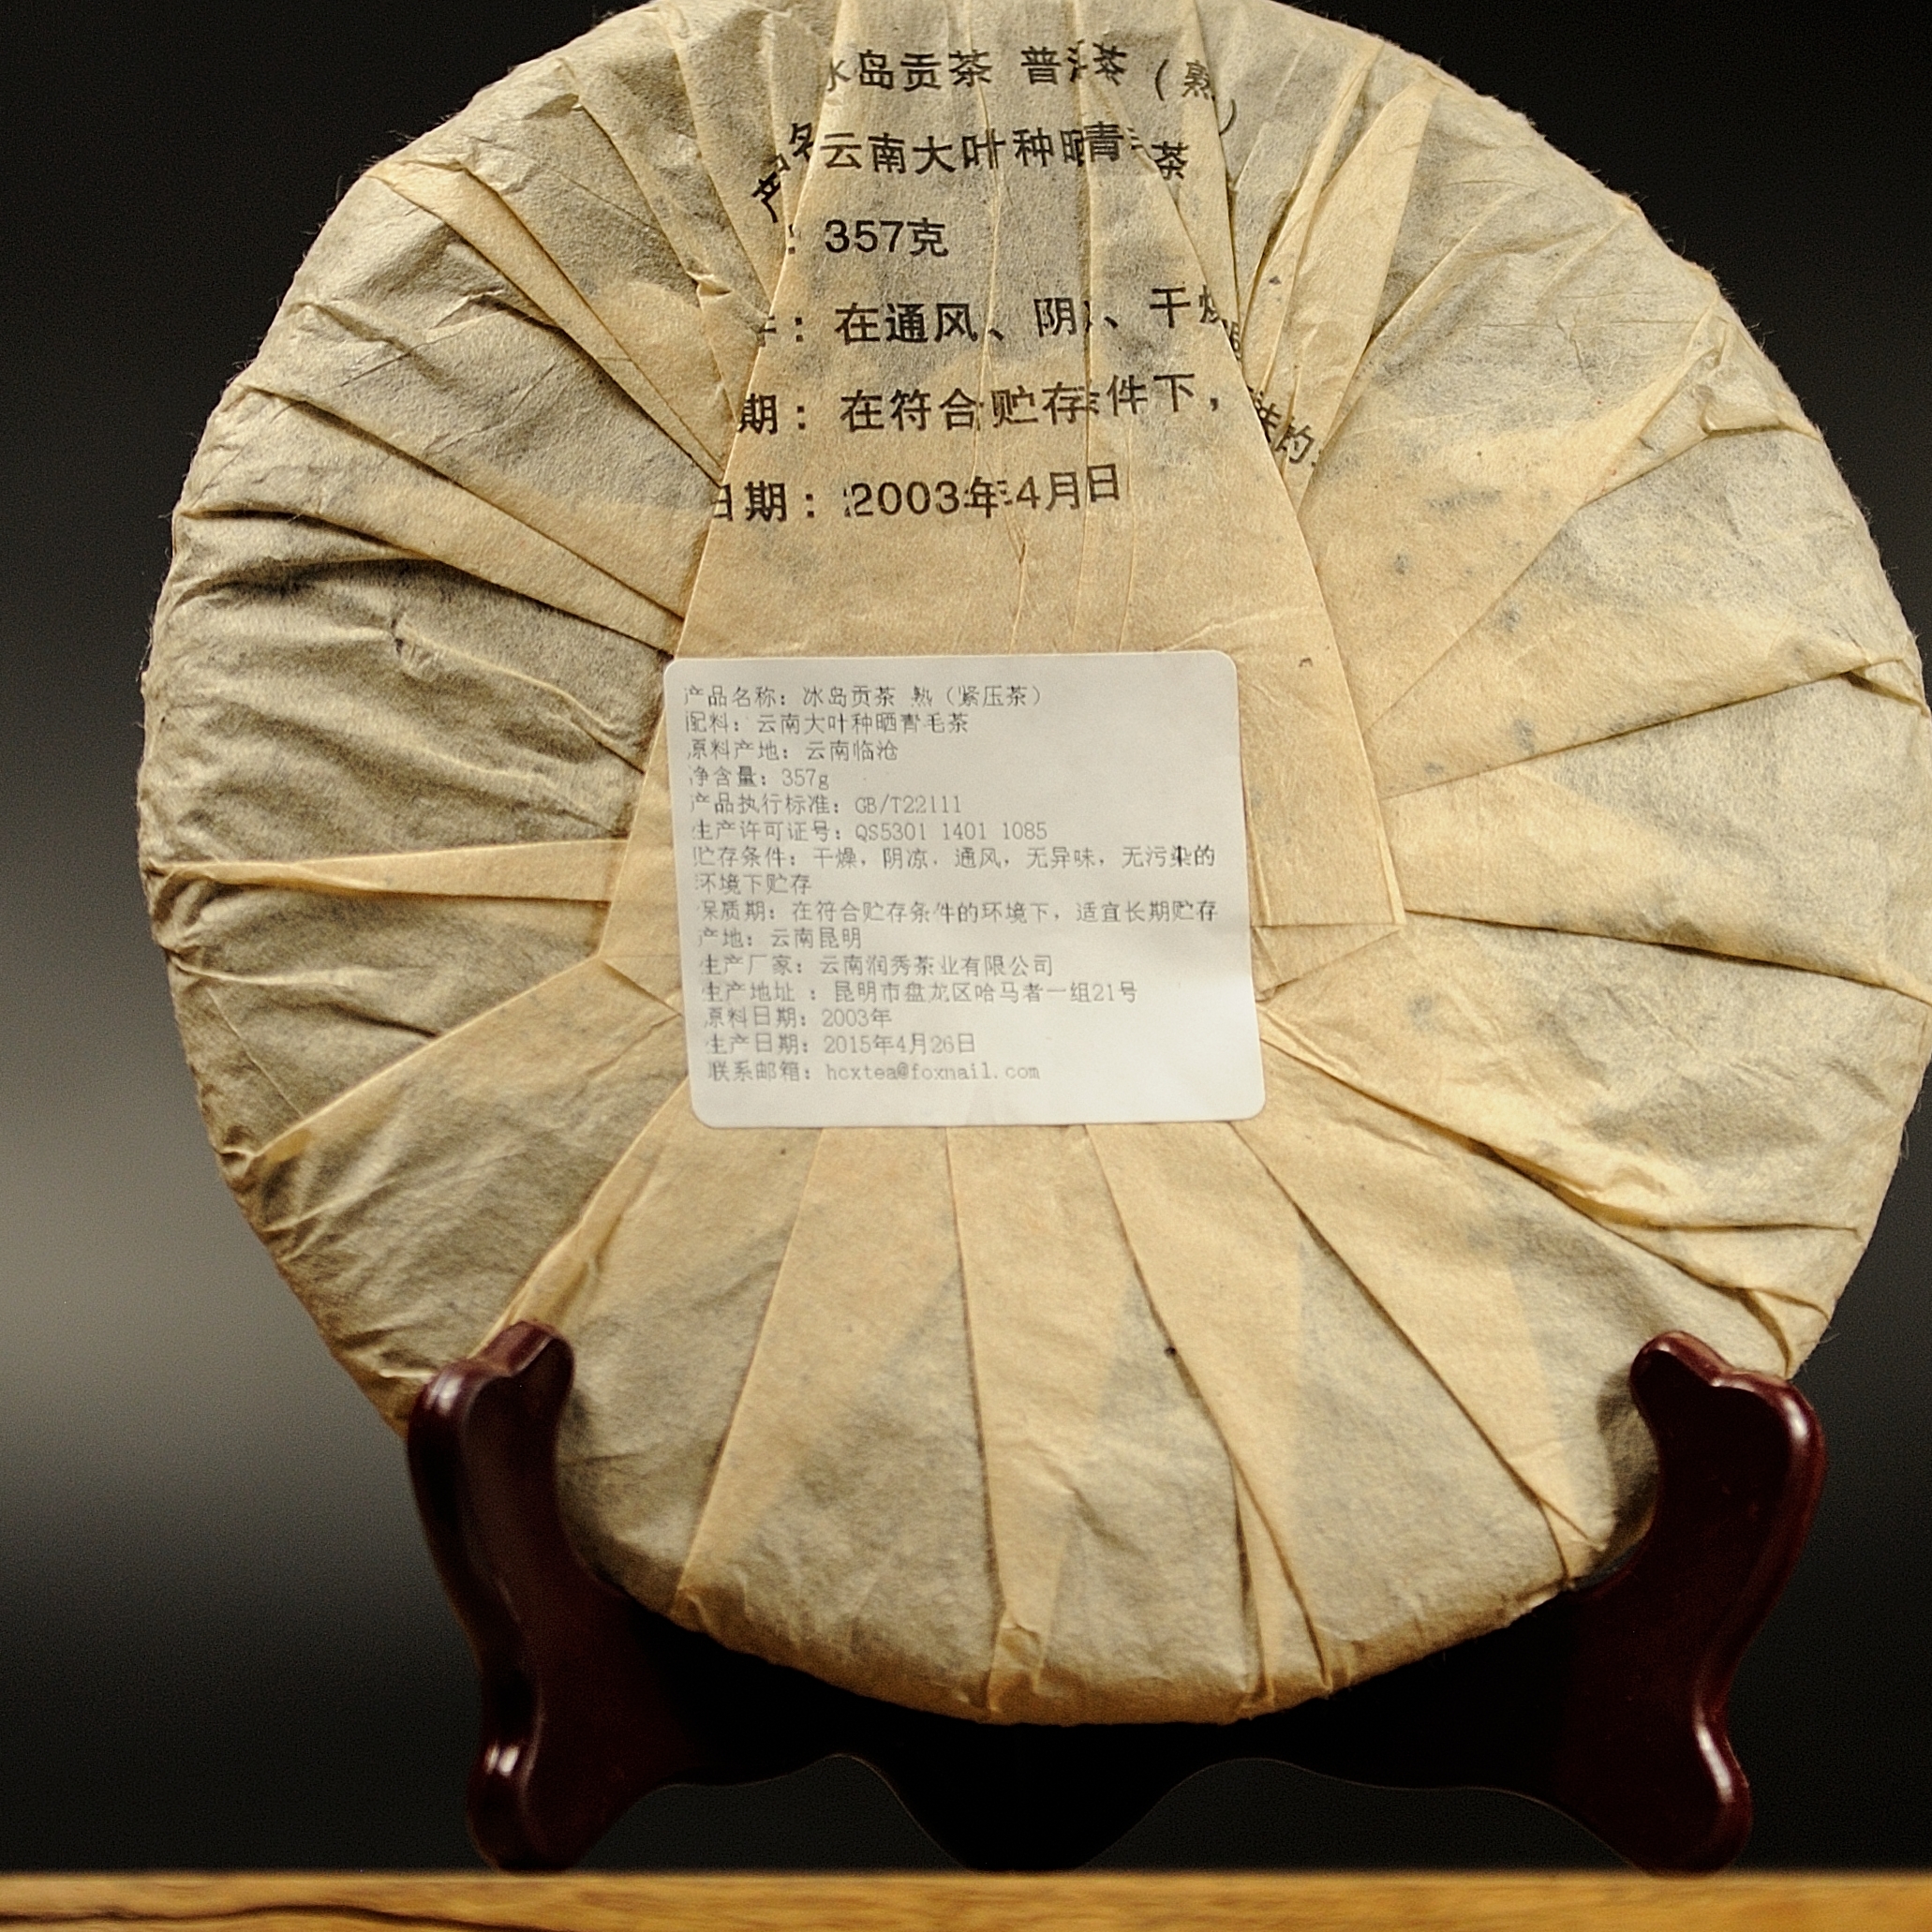 岛贡茶 普洱茶（熟）
产品名
云南大叶种晒青毛茶
：357克
件：在通风、阴凉、干燥
期：在符合贮存条件下，
日期：2003年4月日
产品名称：冰岛贡茶 熟（紧压茶）
配料：云南大叶种晒青毛茶
原料产地：云南临沧
净含量：357g
产品执行标准：GB/T22111
生产许可证号：QS5301 1401 1085
贮存条件：干燥，阴凉，通风，无异味，无污染的
环境下贮存
保质期：在符合贮存条件的环境下，适宜长期贮存
产地：云南昆明
生产厂家：云南润秀茶业有限公司
生产地址：昆明市盘龙区哈马者一组21号
原料日期：2003年
生产日期：2015年4月26日
联系邮箱：hcxtea@foxmail.com